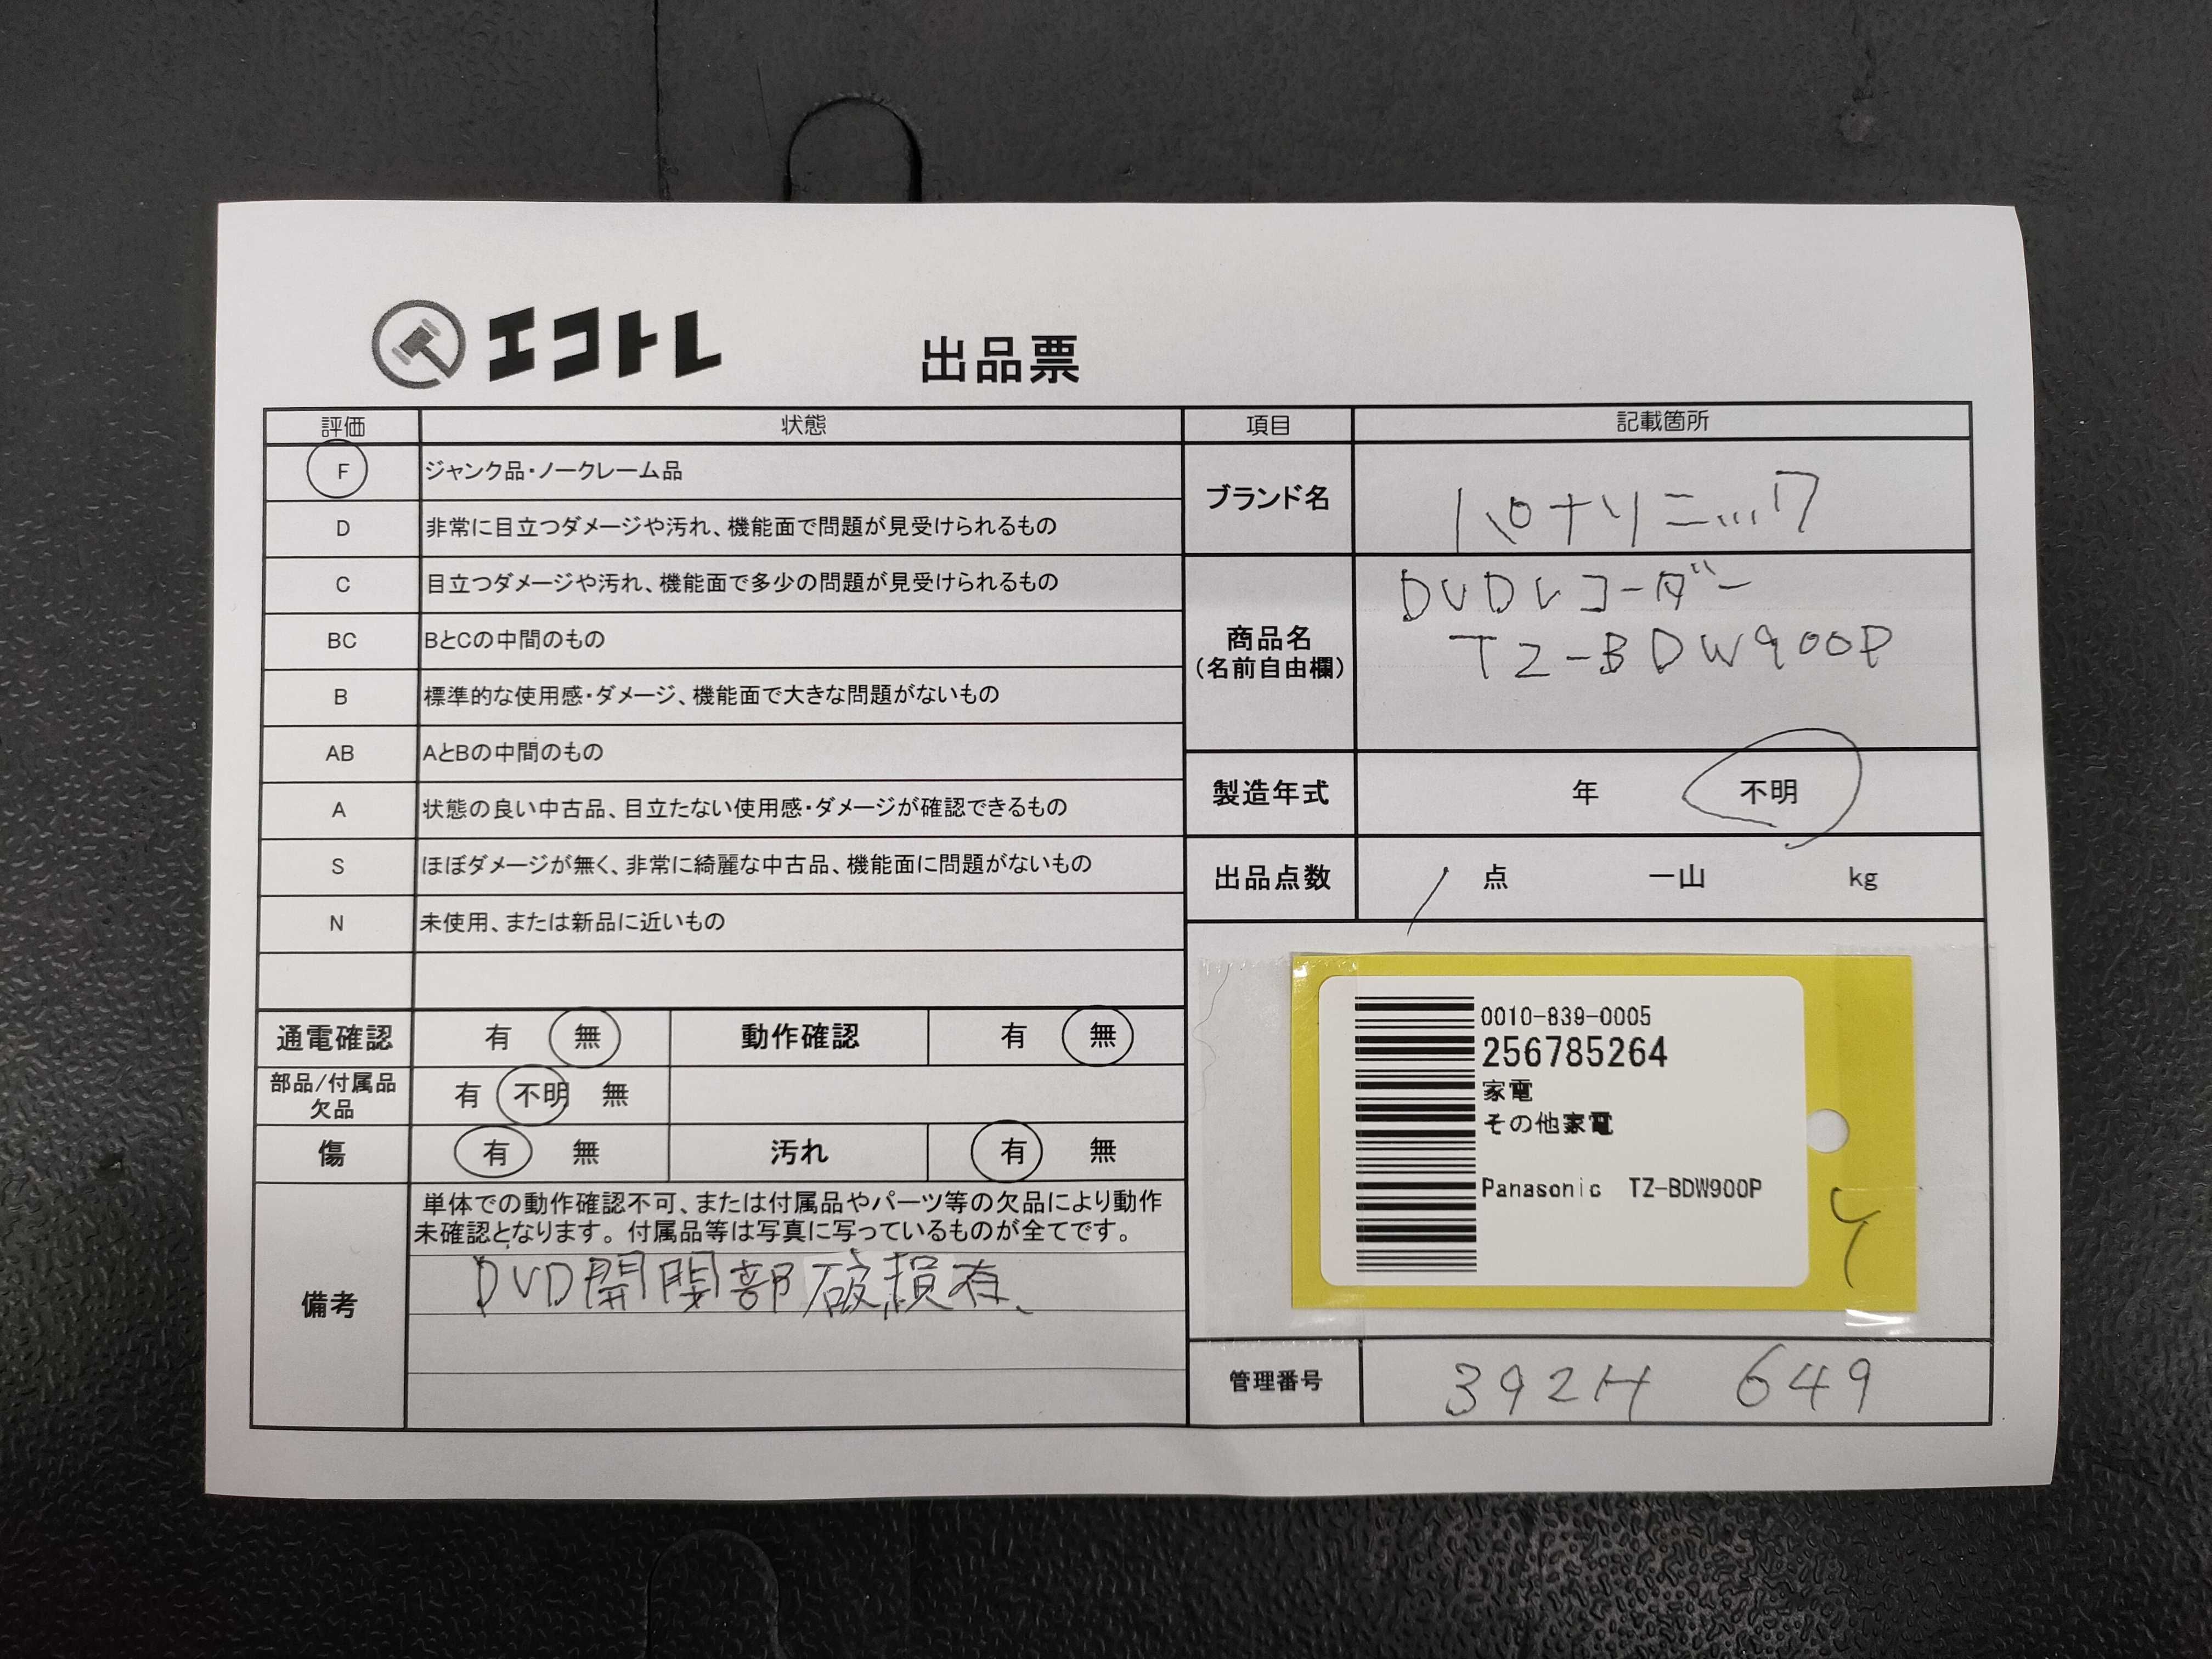 エコトレ 出品票
評価 状態 項目 記載箇所
F ジャンク品・ノークレーム品
D 非常に目立つダメージや汚れ、機能面で問題が見受けられるもの
C 目立つダメージや汚れ、機能面で多少の問題が見受けられるもの
BC BとCの中間のもの
B 標準的な使用感・ダメージ、機能面で大きな問題がないもの
AB AとBの中間のもの
A 状態の良い中古品、目立たない使用感・ダメージが確認できるもの
S ほぼダメージが無く、非常に綺麗な中古品、機能面に問題がないもの
N 未使用、または新品に近いもの
通電確認 有 無 動作確認 有 無
部品/付属品
欠品
有 不明 無
傷 有 無 汚れ 有 無
備考
単体での動作確認不可、または付属品やパーツ等の欠品により動作
未確認となります。付属品等は写真に写っているものが全てです。
DVD開閉部破損有、
ブランド名 パナソニック
商品名
(名前自由欄)
DVDレコーダー
TZ-BDW900P
製造年式 年 不明
出品点数 1 点 一山 kg
0010-839-0005
256785264
家電
その他家電
Panasonic TZ-BDW900P
管理番号 392H 649